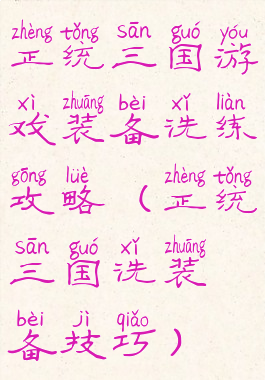 zhèng tǒng sān guó yóu
正统三国游
xì zhuāng bèi xǐ liàn
戏装备洗练
gōng lüè zhèng tǒng
攻略（正统
sān guó xǐ zhuāng
三国洗装
bèi jì qiǎo
备技巧）